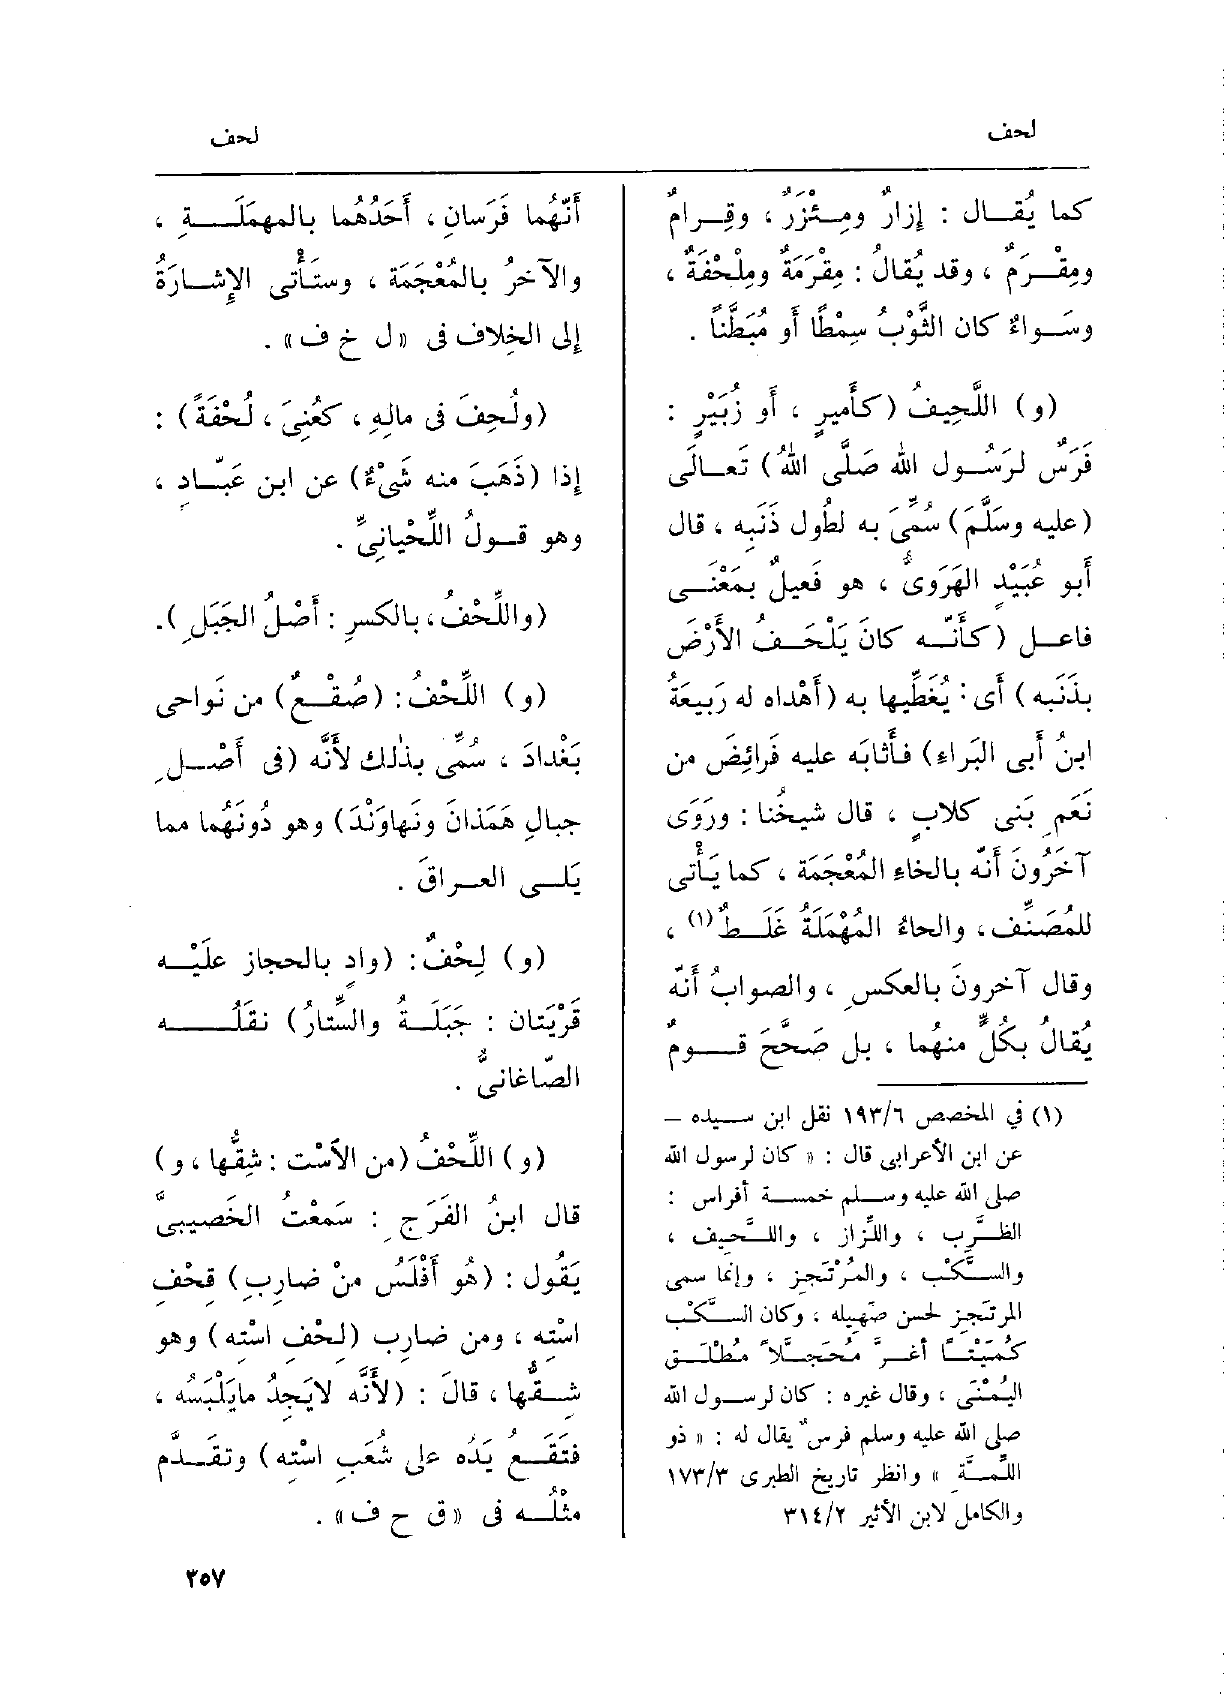 لحف
لحف
كما يُقــال : إزارٌ ومِئْزَرٌ ، وقِــرامٌ
ومِقْــرَمٌ ، وقد يُقالُ : مِقْرَمَةٌ ومِلْحَفَةٌ ،
وسَــواءٌ كان الثَّوْبُ سِمْطًا أو مُبَطَّناً .
(و) اللَّحِيفُ (كأَميرٍ ، أو زُبَيْرٍ :
فَرَسٌ لرَسُــول الله صَلَّى اللهُ) تَعــالَى
(عليه وسَلَّمَ) سُمِّىَ به لطُول ذَنَبِه ، قال
أَبو عُبَيْدٍ الهَرَوىُّ ، هو فَعِيلٌ بمَعْنَــى
فاعــل (كأَنَّــه كانَ يَلْحَــفُ الأَرْضَ
بذَنَبِه) أَى : يُغَطِّيها به (أَهْداه له رَبِيعَةُ
ابنُ أَبى البَراء) فأَثابَه عليه فَرائِضَ من
نَعَمِ بَنى كلابٍ ، قال شيخُنا : ورَوَى
آخَرُونَ أَنَّه بالخاءِ المُعْجَمَة ، كما يَأْتى
للمُصَنِّف، والحاءُ المُهْمَلَةُ غَلَــطٌ(١) ،
وقال آخرونَ بالعكسِ ، والصوابُ أَنَّه
يُقالُ بكُلٍّ منهُما ، بل صَحَّحَ قــومٌ
(١) في المخصص ١٩٣/٦ نقل ابن ســيده –
عن ابن الأعرابى قال : « كان لرسول الله
صلى الله عليه وســلم خمســة أفراس :
الظَّــرِب ، واللِّزاز ، واللَّــحِيف ،
والسَّــكْب ، والمُرْتَجِز ، وإنما سمى
المرتَجِز لحسن صَهِيله ، وكان السَّــكْب
كُمَيْتــاً أغــرَّ مُحَجَّــلاً مُطْلَــق
اليُمْنَى ، وقال غيره : كان لرســول الله
صلى الله عليه وسلم فرسٌ يقال له : « ذو
اللِّمَّــةِ » وانظر تاريخ الطبرى ١٧٣/٣
والكامل لابن الأثير ٣١٤/٢
أَنَّهُما فَرَسانِ ، أَحَدُهُما بالمهمَلَــةِ ،
والآخرُ بالمُعْجَمَة ، وستَــأْتى الإِشــارَةُ
إلى الخِلاف فى «ل خ ف» .
(ولُحِفَ فى مالِه ، كعُنِىَ ، لُحْفَةً) :
إذا (ذَهَبَ منه شَىْءٌ) عن ابن عَبّــادٍ ،
وهو قــولُ اللِّحْيانِىِّ .
(واللِّحْفُ ، بالكسرِ : أَصْلُ الجَبَلِ).
(و) اللِّحْفُ: (صُقْــعٌ) من نَواحى
بَغْدادَ ، سُمِّى بذٰلك لأَنَّه (فى أَصْــلِ
جبالِ هَمَذانَ ونَهاوَنْدَ) وهو دُونَهُما مما
يَلــى العــراقَ .
(و) لِحْفٌ: (وادٍ بالحجاز علَيْــه
قَرْيَتان : جَبَلَــةُ والسِّتارُ) نقلَــــه
الصّاغانىُّ .
(و) اللِّحْفُ (من الاَسْت : شِقُّها ، و)
قال ابنُ الفَرَجِ : سَمَعْتُ الخَصيبىَّ
يَقُول : (هُو أَفْلَسُ منْ ضارِبِ) قِحْفِ
اسْتِه ، ومن ضارِب (لِحْفِ اسْتِه) وهو
شِــقُّها ، قالَ : (لأَنَّه لايَجِدُ مايَلْبَسُه ،
فتَقَــعُ يَدُه على شُعَبِ اسْتِه) وتقَــدَّم
مثْلُــه فى «ق ح ف» .
٣٥٧